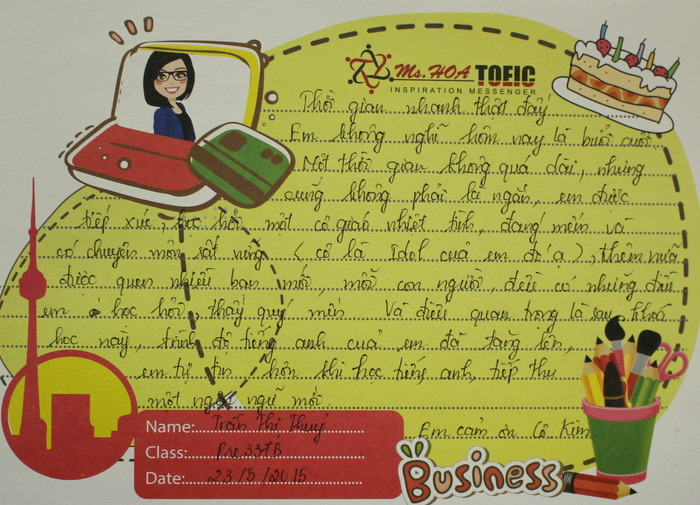 Ms. HOA TOEIC
INSPIRATION MESSENGER
Thời gian nhanh thật đấy
Em không nghĩ hôm nay là buổi cuối.
Một thời gian không quá dài, nhưng
cũng không phải là ngắn, em được
tiếp xúc, học hỏi một cô giáo nhiệt tình, đáng mến và
có chuyên môn rất vững ( cô là Idol của em đó ạ ), thêm nữa
được quen nhiều bạn mới, mỗi con người, đều có những điều
em học hỏi, thấy quý mến Và điều quan trọng là sau khoá
học này, trình độ tiếng anh của em đã tăng lên,
em tự tin hơn khi học tiếng anh, tiếp thu
một ngôn ngữ mới.
Em cảm ơn Cô Kim
Name: Trần Thị Thuỷ
Class: Pre 337B
Date: 23/5/2015
Business